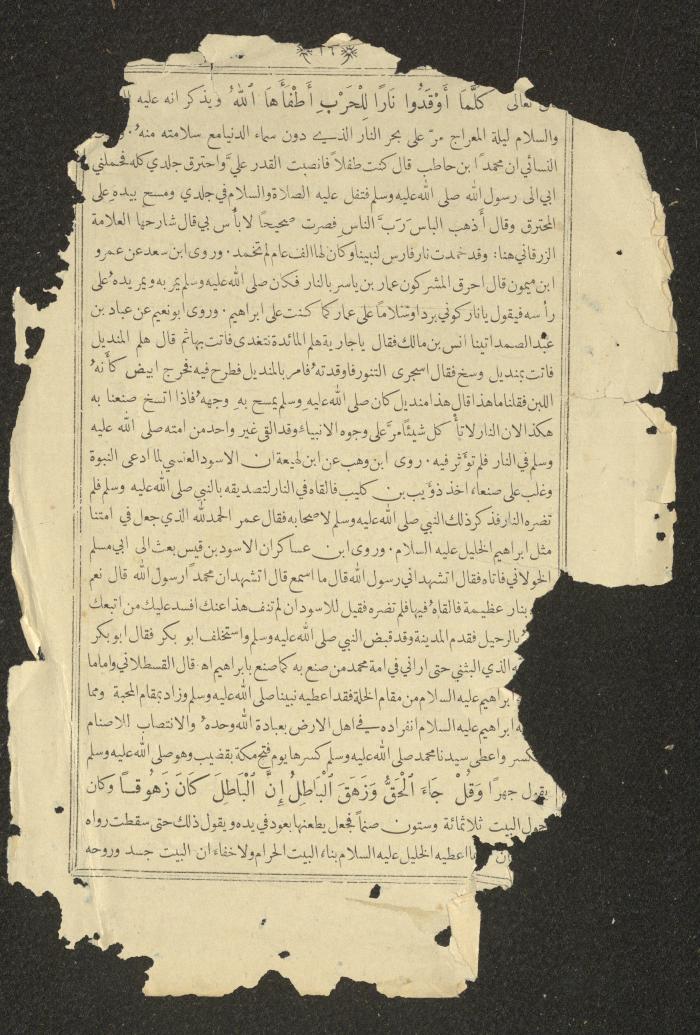 ١٦
تعالى كُلَّمَا أَوْقَدُوا نَارًا لِلْحَرْبِ أَطْفَأَهَا ٱللهُ ويذكر انه عليه
والسلام ليلة المعراج مرّ على بحر النار الذي دون سماء الدنيا مع سلامته منه.
النسائي ان محمدًا ابن حاطب قال كنت طفلاً فانصبت القدر عليَّ واحترق جلدي كله فحملني
ابي الى رسول الله صلى الله عليه وسلم فتفل عليه الصلاة والسلام في جلدي ومسح بيده على
المحترق وقال أذهب الباس رَبَّ الناس فصرت صحيحًا لا بأس بي قال شارحها العلامة
الزرقاني هنا: وقد خمدت نار فارس لنبينا وكان لها الف عام لم تخمد. وروى ابن سعد عن عمرو
ابن ميمون قال احرق المشركون عمار بن ياسر بالنار فكان صلى الله عليه وسلم يمر به ويمر يده على
رأسه فيقول يا نار كوني بردا وسَلامًا على عمار كما كنت على ابراهيم. وروى ابو نعيم عن عباد بن
عبد الصمد اتينا انس بن مالك فقال يا جارية هلم المائدة نتغدى فاتت بها ثم قال هلم المنديل
فاتت بمنديل وسخ فقال اسجرى التنور فاوقدته فامر بالمنديل فطرح فيه فخرج ابيض كأنه
اللبن فقلنا ما هذا قال هذا منديل كان صلى الله عليه وسلم يمسح به وجهه فاذا اتسخ صنعنا به
هكذا لان النار لا تأكل شيئًا مرَّ على وجوه الانبياء وقد القى غير واحد من امته صلى الله عليه
وسلم في النار فلم تؤثر فيه. روى ابن وهب عن ابن لهيعة ان الاسود العنسي لما ادعى النبوة
وغلب على صنعاء اخذ ذؤيب بن كليب فالقاه في النار لتصديقه بالنبي صلى الله عليه وسلم فلم
تضره النار فذكر ذلك النبي صلى الله عليه وسلم لاصحابه فقال عمر الحمد لله الذي جعل في امتنا
مثل ابراهيم الخليل عليه السلام. وروى ابن عساكر ان الاسود بن قيس بعث الى ابي مسلم
الخولاني فاتاه فقال اتشهد اني رسول الله قال ما اسمع قال اتشهد ان محمدًا رسول الله قال نعم
بنار عظيمة فالقاه فيها فلم تضره فقيل للاسود ان لم تنف هذا عنك افسد عليك من اتبعك
بالرحيل فقدم المدينة وقد قبض النبي صلى الله عليه وسلم واستخلف ابو بكر فقال ابو بكر
الذي البثني حتى اراني في امة محمد من صنع به كما صنع بابراهيم اه قال القسطلاني واما ما
ابراهيم عليه السلام من مقام الخلة فقد اعطيه نبينا صلى الله عليه وسلم وزاد بمقام المحبة ومما
ابراهيم عليه السلام انفراده في اهل الارض بعبادة الله وحده والانتصاب للاصنام
كسر واعطى سيدنا محمد صلى الله عليه وسلم كسرها يوم فتح مكة بقضيب وهو صلى الله عليه وسلم
يقول جهرًا وَقُلْ جَاءَ ٱلْحَقُّ وَزَهَقَ ٱلْبَاطِلُ إِنَّ ٱلْبَاطِلَ كَانَ زَهُوقًا وكان
حول البيت ثلاثمائة وستون صنمًا فجعل يطعنها بعود في يده ويقول ذلك حتى سقطت رواه
اعطيه الخليل عليه السلام بناء البيت الحرام ولا خفاء ان البيت جسد وروحه